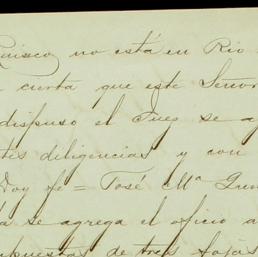 no está en Rio
cierta que este Señor
dispuso el Juez se a
diligencias y con
Doy fe = José Mª
se agrega el oficio a
de tres fojas